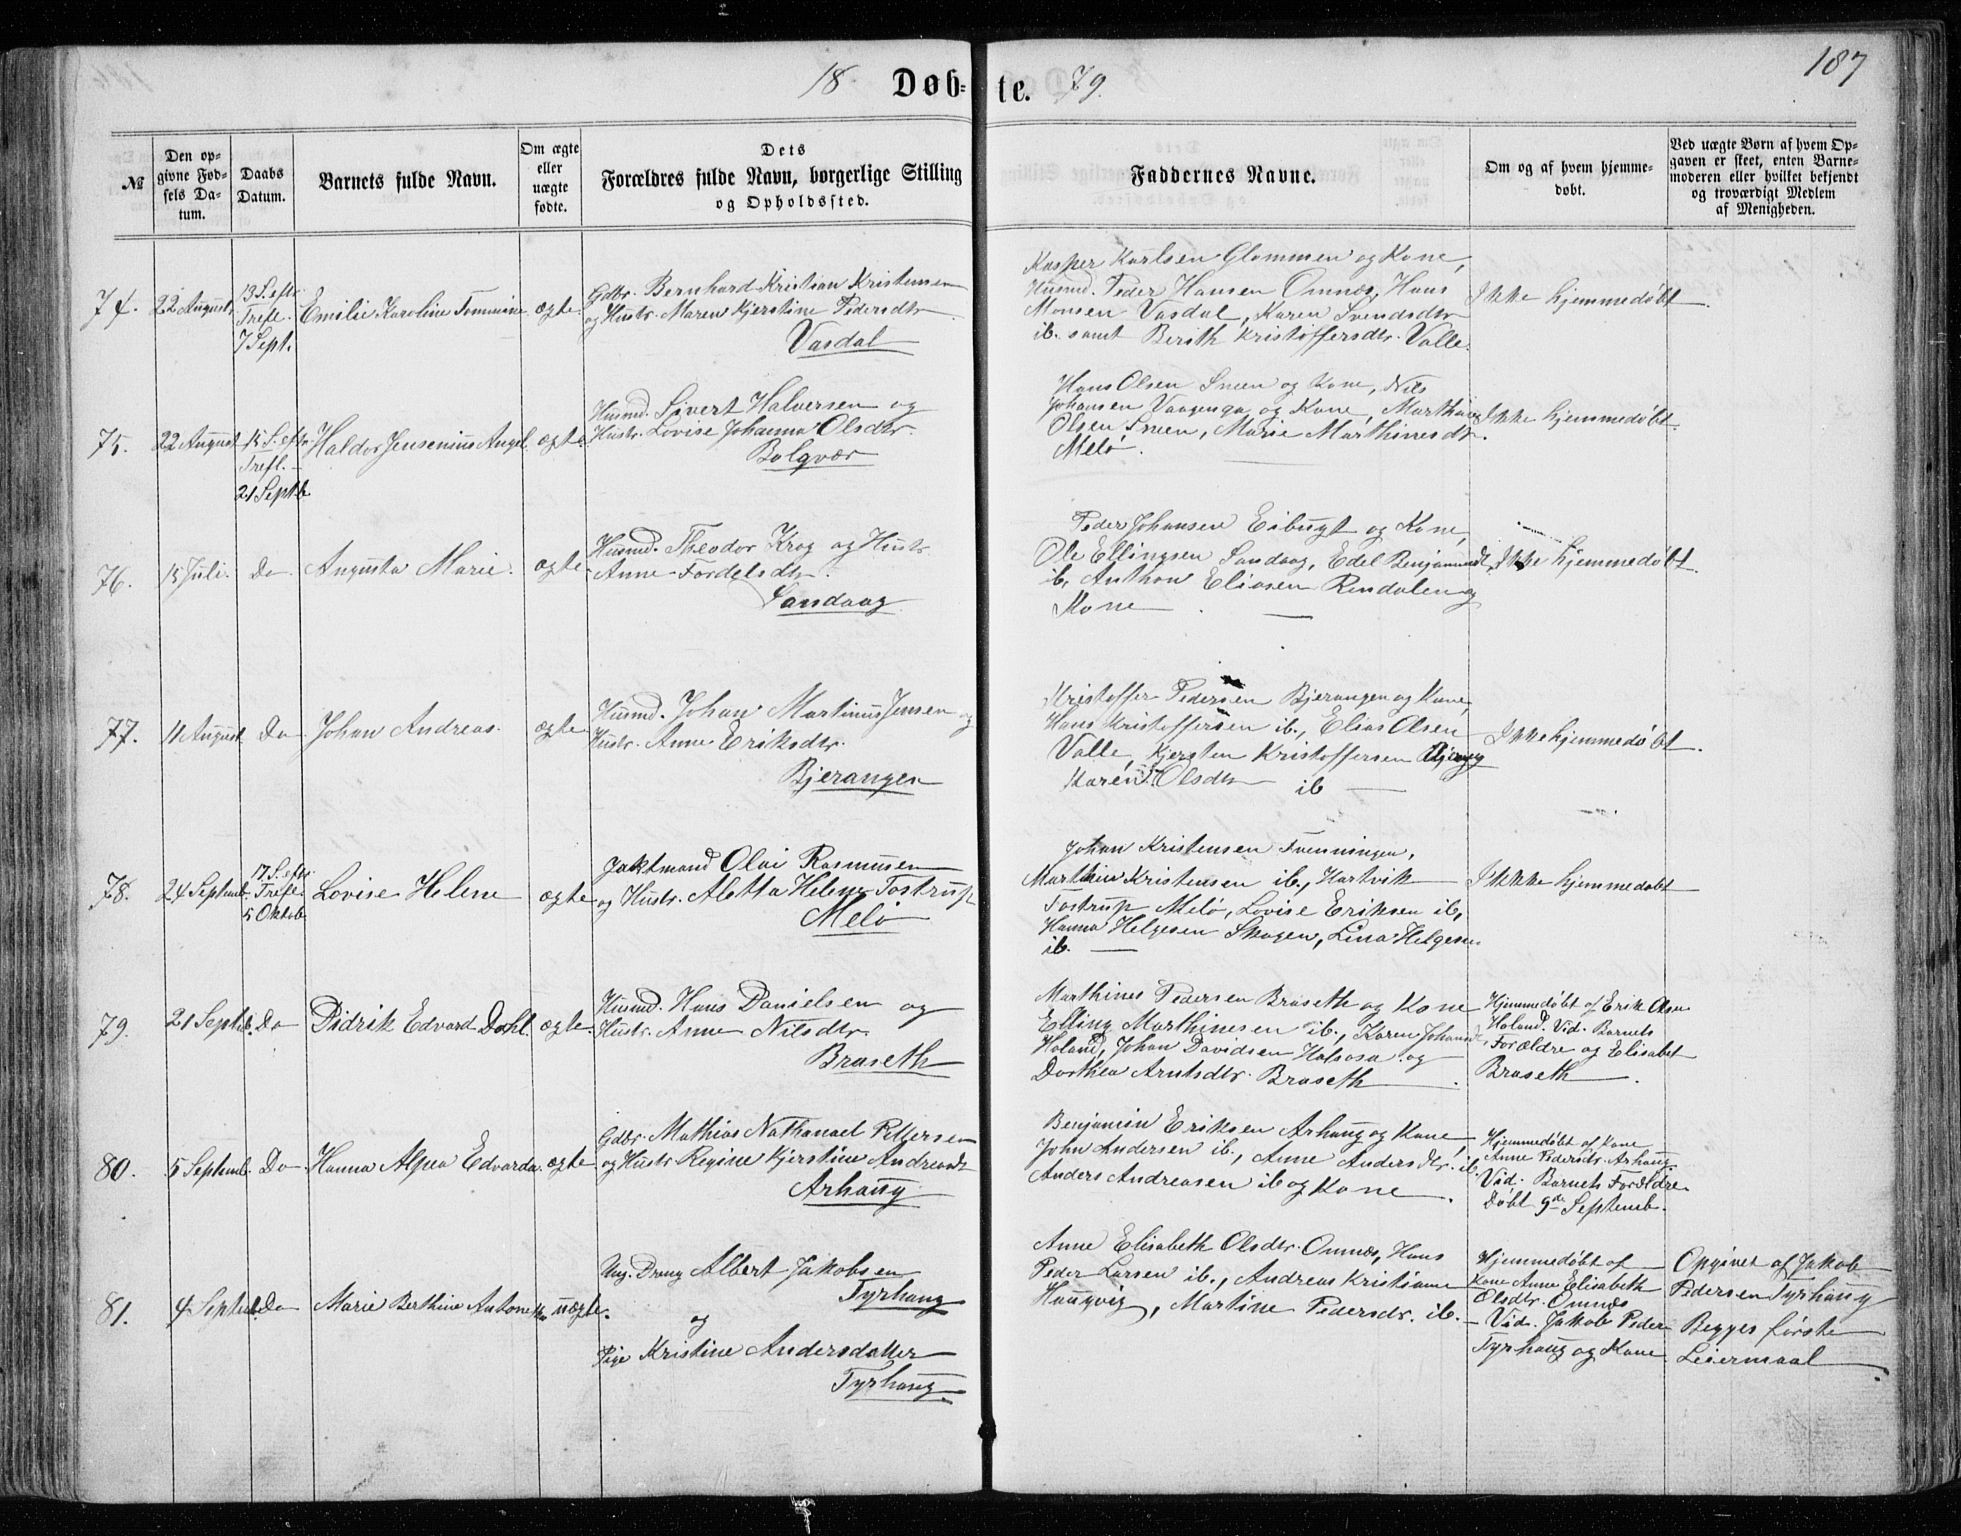 187
18 Døb-te. 79.
№
Den opgivne Fødsels Datum.
Daabs Datum.
Barnets fulde Navn.
Om ægte eller uægte fødte.
Dets Forældres fulde Navn, borgerlige Stilling og Opholdssted.
Faddernes Navne.
Om og af hvem hjemmedøbt.
Ved uægte Børn af hvem Opgaven er skeet, enten Barnemoderen eller hvilket bekjendt og troværdigt Medlem af Menigheden.
74. 22 August 13 S. eftr Trefl. 7 Sept. Emilie Karoline Tommine ægte
Gdbr. Bernhard Kristian Kristensen
og Hustr. Maren Kjerstine Pedersdtr.
Vasdal
Kasper Karlsen Glommen og Kone,
Husmd. Peder Hansen Omnæs, Hans
Monsen Vasdal, Karen Svendsdtr
ib. samt Berith Kristoffersdtr. Valle.
Ikke hjemmedøbt.
75. 22 August 15 S. eftr Trefl. 21 Septb. Haldor Jensenius Angel ægte
Husmd. Sivert Halversen og
Hustr. Lovise Johanna Olsdtr
Bolgvær
Hans Olsen Sneen og Kone, Nils
Johansen Vaagenga og Kone, Marthin
Olsen Sneen, Marie Marthinesdtr.
Melø.
Ikke hjemmedøbt.
76. 15 Juli. Do Augusta Marie. ægte
Husmd. Theodor Krog og Hustr.
Anne Fordelsdtr.
Sandaag
Peder Johansen Eibugt og Kone,
Ole Ellingsen Sandaag, Edel Benjaminsdt
ib, Anthon Eliasen Rendalen og
Kone
Ikke hjemmedøbt.
77. 11 August Do Johan Andreas. ægte
Husmd. Johan Martinus Jensen og
Hustr. Anne Eriksdtr.
Bjerangen
Kristoffer Pedersen Bjerangen og Kone,
Hans Kristoffersen ib., Elias Olsen
Valle, Kjersten Kristoffersen
Karen Olsdtr ib
Ikke hjemmedøbt.
78. 24 Septemb. 17 S. eftr Trefl. 5 Oktob. Lovise Helene ægte
Jaktmand Olai Rasmusen
og Hustr. Aletta Helene Tostrup
Melø
Johan Kristensen Svenningen,
Marthin Kristensen ib., Hartvik
Tostrup Melø, Lovise Eriksen ib,
Hanna Helgesen Skogen, Lina Helgesen
ib.
Ikkke hjemmedøbt
79. 21 Septb. Do Didrik Edvard Dahl. ægte
Husmd. Hans Danielsen og
Hustr. Anne Nilsdtr.
Braseth
Marthines Pedersen Braseth og Kone
Elling Marthinesen ib., Karen Johansdt,
Holand, Johan Davidsen Hafsosa og
Dorthea Arntsdtr. Braseth.
Hjemmedøbt af Erik Olsen
Holand. Vid. Barnets
Forældre og Elisabet
Braseth.
80. 5 Septemb. Do Hanna Alpea Edvarda ægte
Gdbr. Mathias Nathanael Pettersen
og Hustr Regine Kjerstine Andreasdt
Arhaug
Benjamin Eriksen Arhaug og Kone,
John Andersen ib., Anne Andersdtr. ib.
Anders Andreasen ib og Kone.
Hjemmedøbt af Kone
Anne Pedersdtr. Arhaug.
Vid. Barnets Forældre.
Døbt 9de Septemb.
81. 4 Septemb. Do Marie Berthine Antone uægte.
Ung. Dreng Albert Jakobsen
Tyrhaug
og
Pige Kristine Andersdatter
Tyrhaug.
Anne Elisabeth Olsdtr. Omnæs, Hans
Peder Larsen ib., Andreas Kristians
Haugvig, Martine Pedersdtr. ib.
Hjemmedøbt af
Kone Anne Elisabeth
Olsdtr. Omnæs
Vid. Jakob Peder
Tyrhaug og Kone
Opgivet af Jakob
Pedersen Tyrhaug
Begges første
Leiermaal